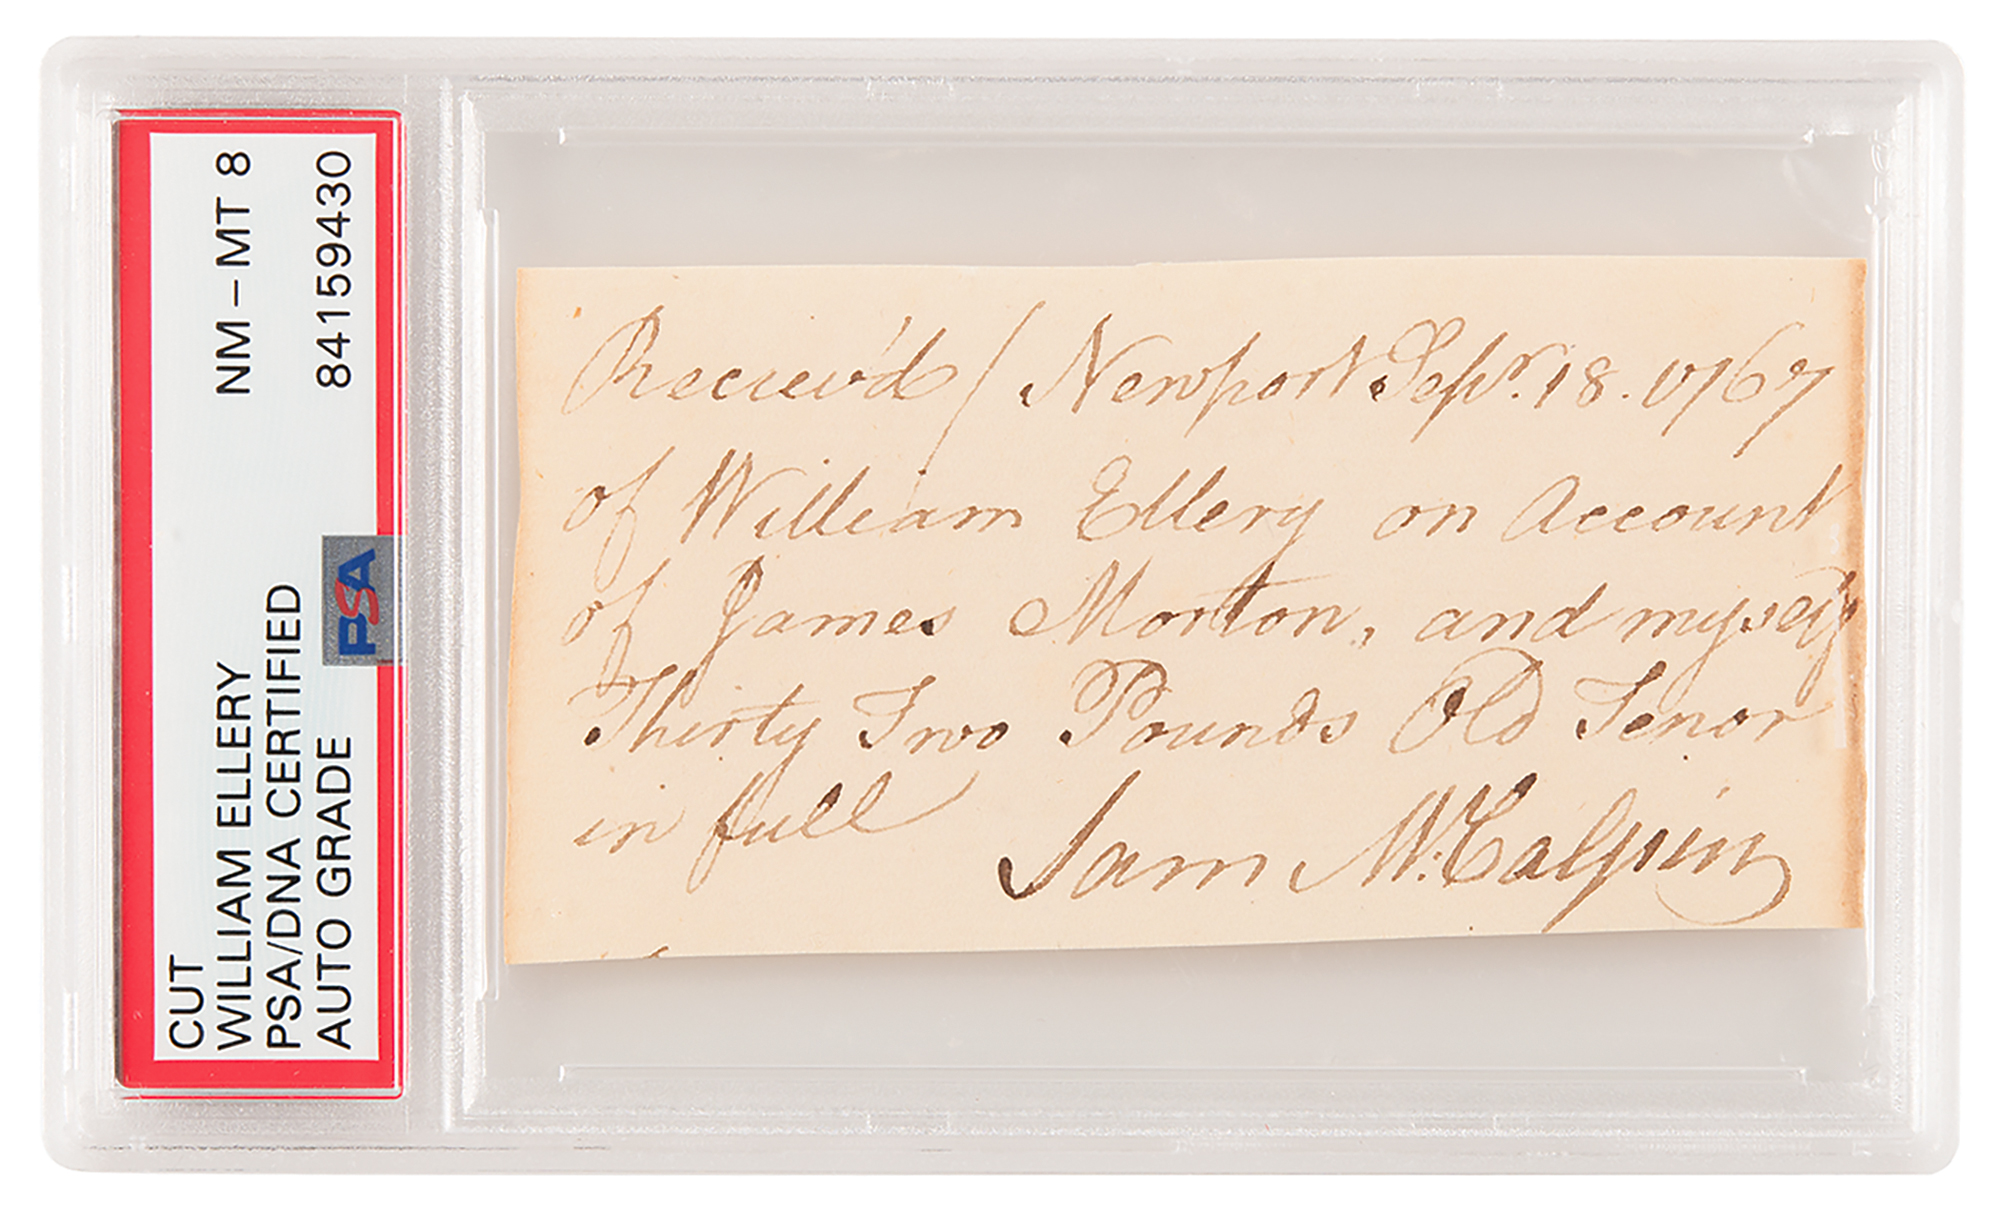 CUT
WILLIAM ELLERY NM - MT 8
PSA/DNA CERTIFIED
AUTO GRADE 84159430
PSA
Reciev'd / Newport Sepr. 18. 1767
of William Ellery on Account
of James Morton, and myself
Thirty Two Pounds Old Tenor
in full
Sam M:Calpin